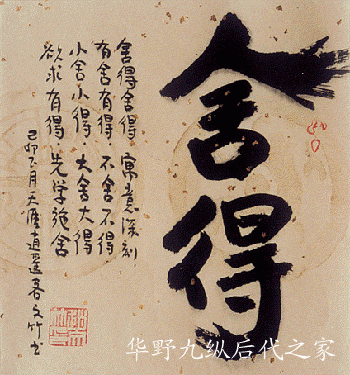 舍得
舍得舍得 寓意深刻
有舍有得 不舍不得
小舍小得 大舍大得
欲求有得 先学施舍
己卯 月天涯逍遥客文竹书
华野九纵后代之家